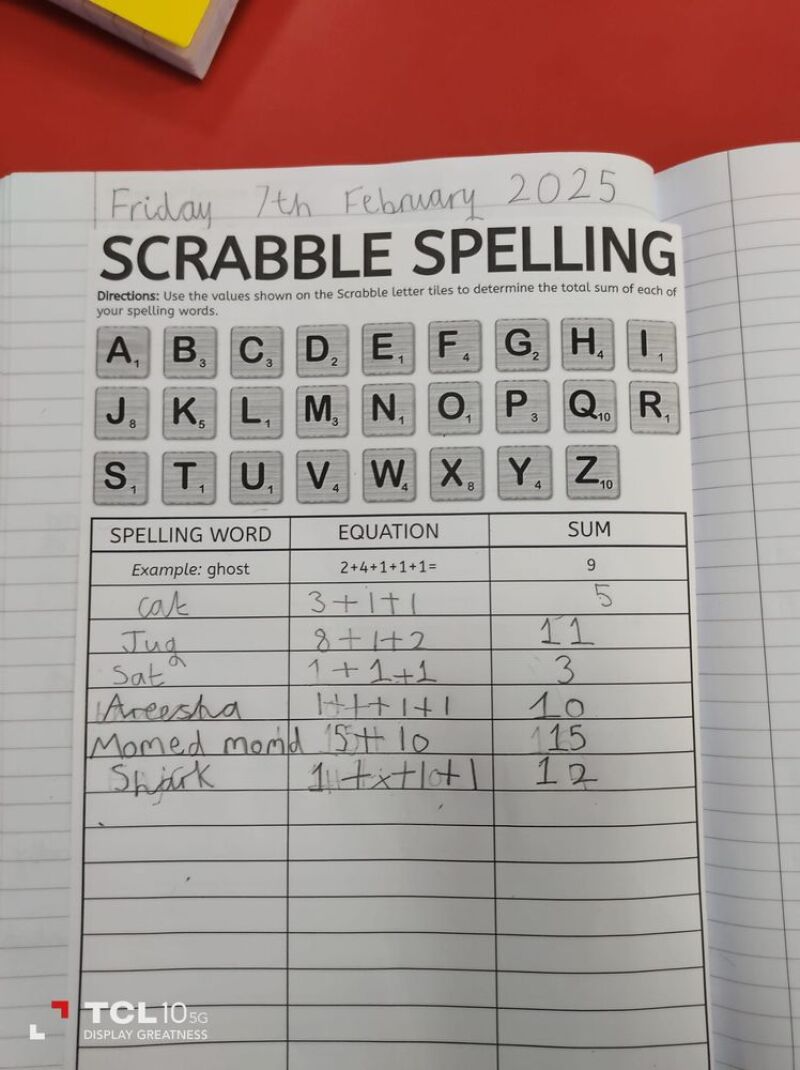 Friday 7th February 2025
SCRABBLE SPELLING
Directions: Use the values shown on the Scrabble letter tiles to determine the total sum of each of
your spelling words.
A1 B3 C3 D2 E1 F4 G2 H4 I1
J8 K5 L1 M3 N1 O1 P3 Q10 R1
S1 T1 U1 V4 W4 X8 Y4 Z10
SPELLING WORD EQUATION SUM
Example: ghost 2+4+1+1+1= 9
cat 3+1+1 5
Jug 8+1+2 11
Sat 1+1+1 3
Areesha 1+1+1+1 10
Momed momd 5+10 15
Shark 12
TCL 10 5G
DISPLAY GREATNESS